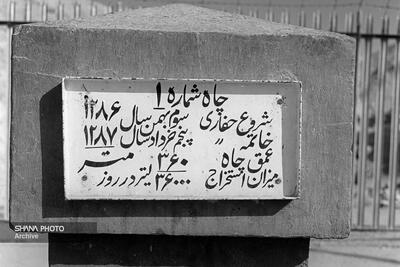 چاه شماره ۱
شروع حفاری سوم بهمن سال ۱۲۸۶
خاتمه " پنجم خرداد سال ۱۲۸۷
عمق چاه ۳۶۰ متر
میزان استخراج ۳۶۰۰۰ لیتر در روز
SHANA PHOTO
Archive